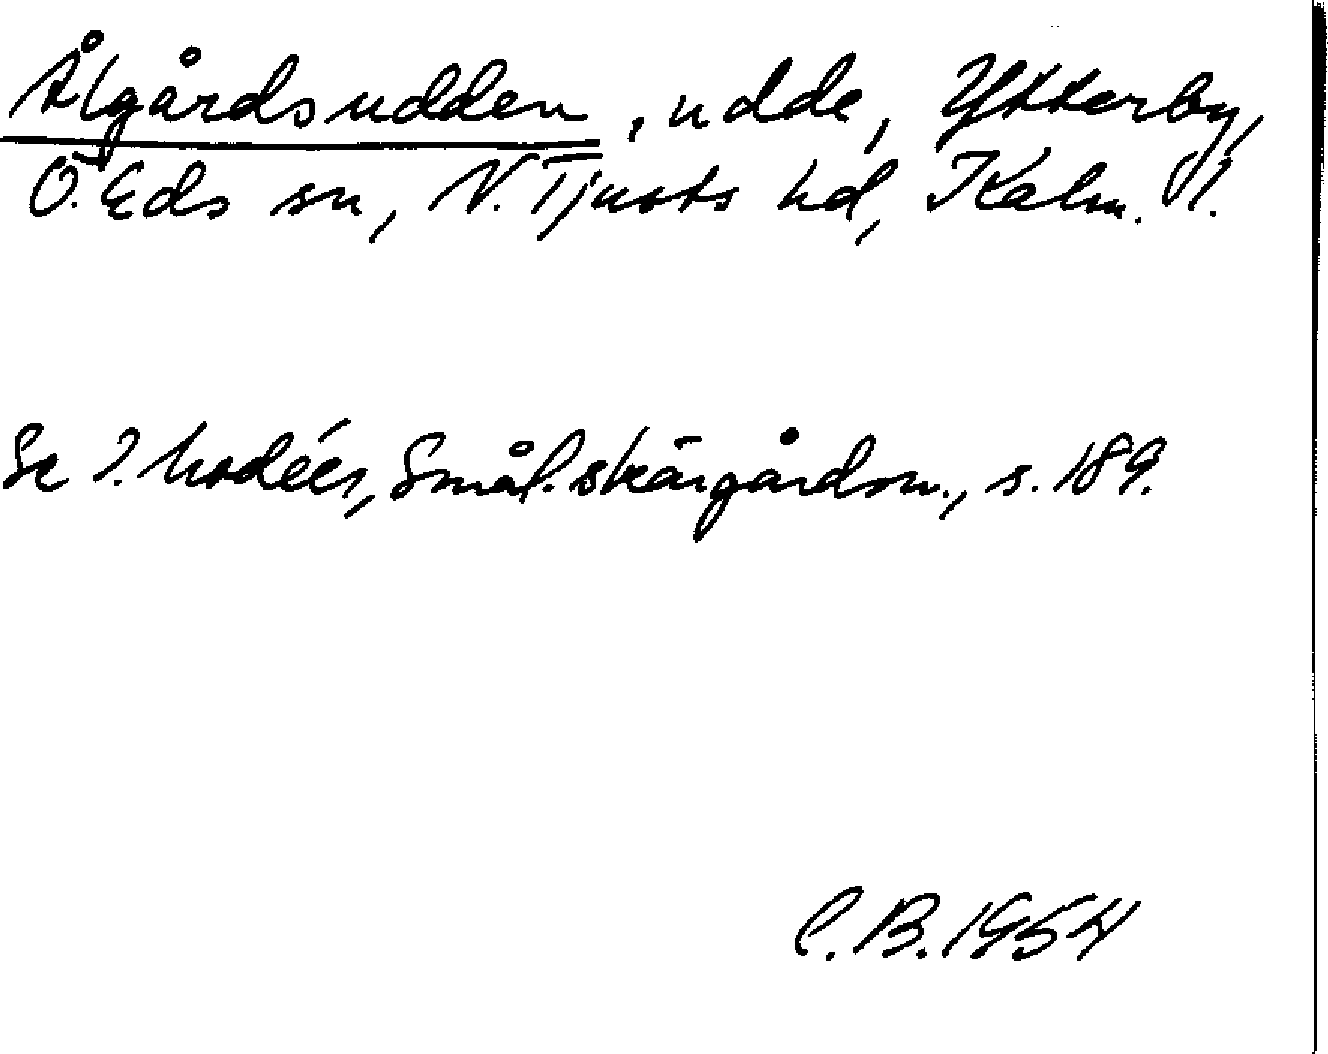 Ålgårdsudden, udde, Ytterby,
Ö. Eds sn, N. Tjusts hd, Kalm. l.
Se I. Modéer, Smål. skärgårdsn., s. 189.
C. B. 1954